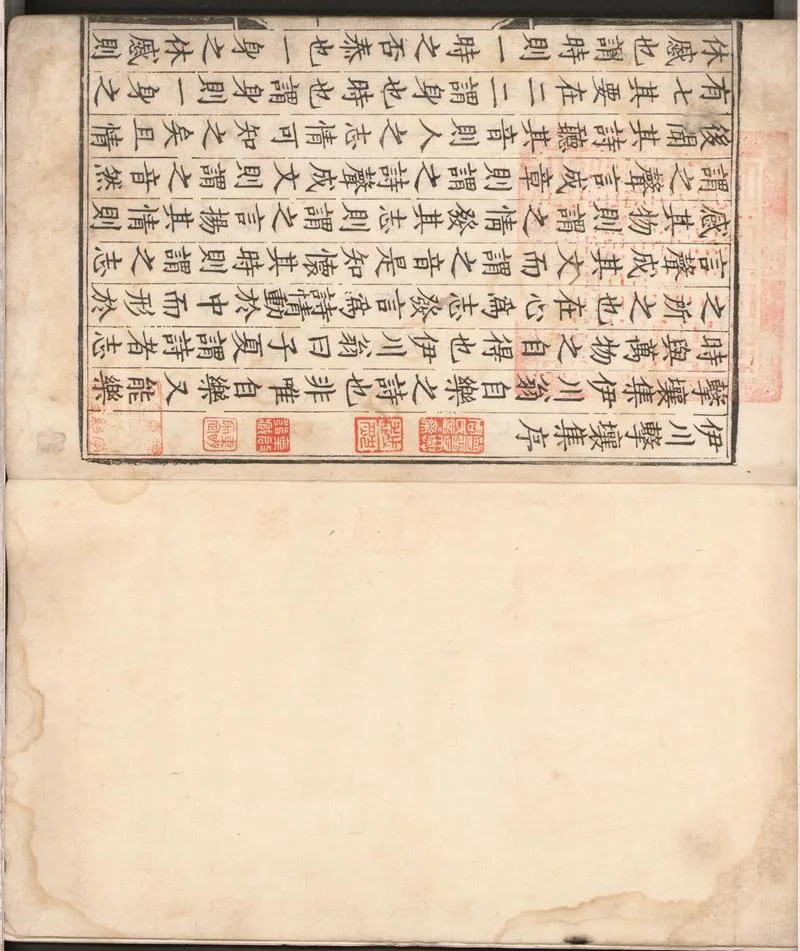 伊川擊壤集序
擊壤集伊川翁自樂之詩也非唯自樂又能樂
時與萬物之自得也伊川翁曰子夏謂詩者志
之所之也在心爲志發言爲詩情動於中而形於
言聲成其文而謂之音是知懷其時則謂之志
感其物則謂之情發其志則謂之言揚其情則
謂之聲言成章則謂之詩聲成文則謂之音然
後聞其詩聽其音則人之志情可知之矣且情
有七其要在二二謂身也時也謂身則一身之
休慼也謂時則一時之否泰也一身之休慼則